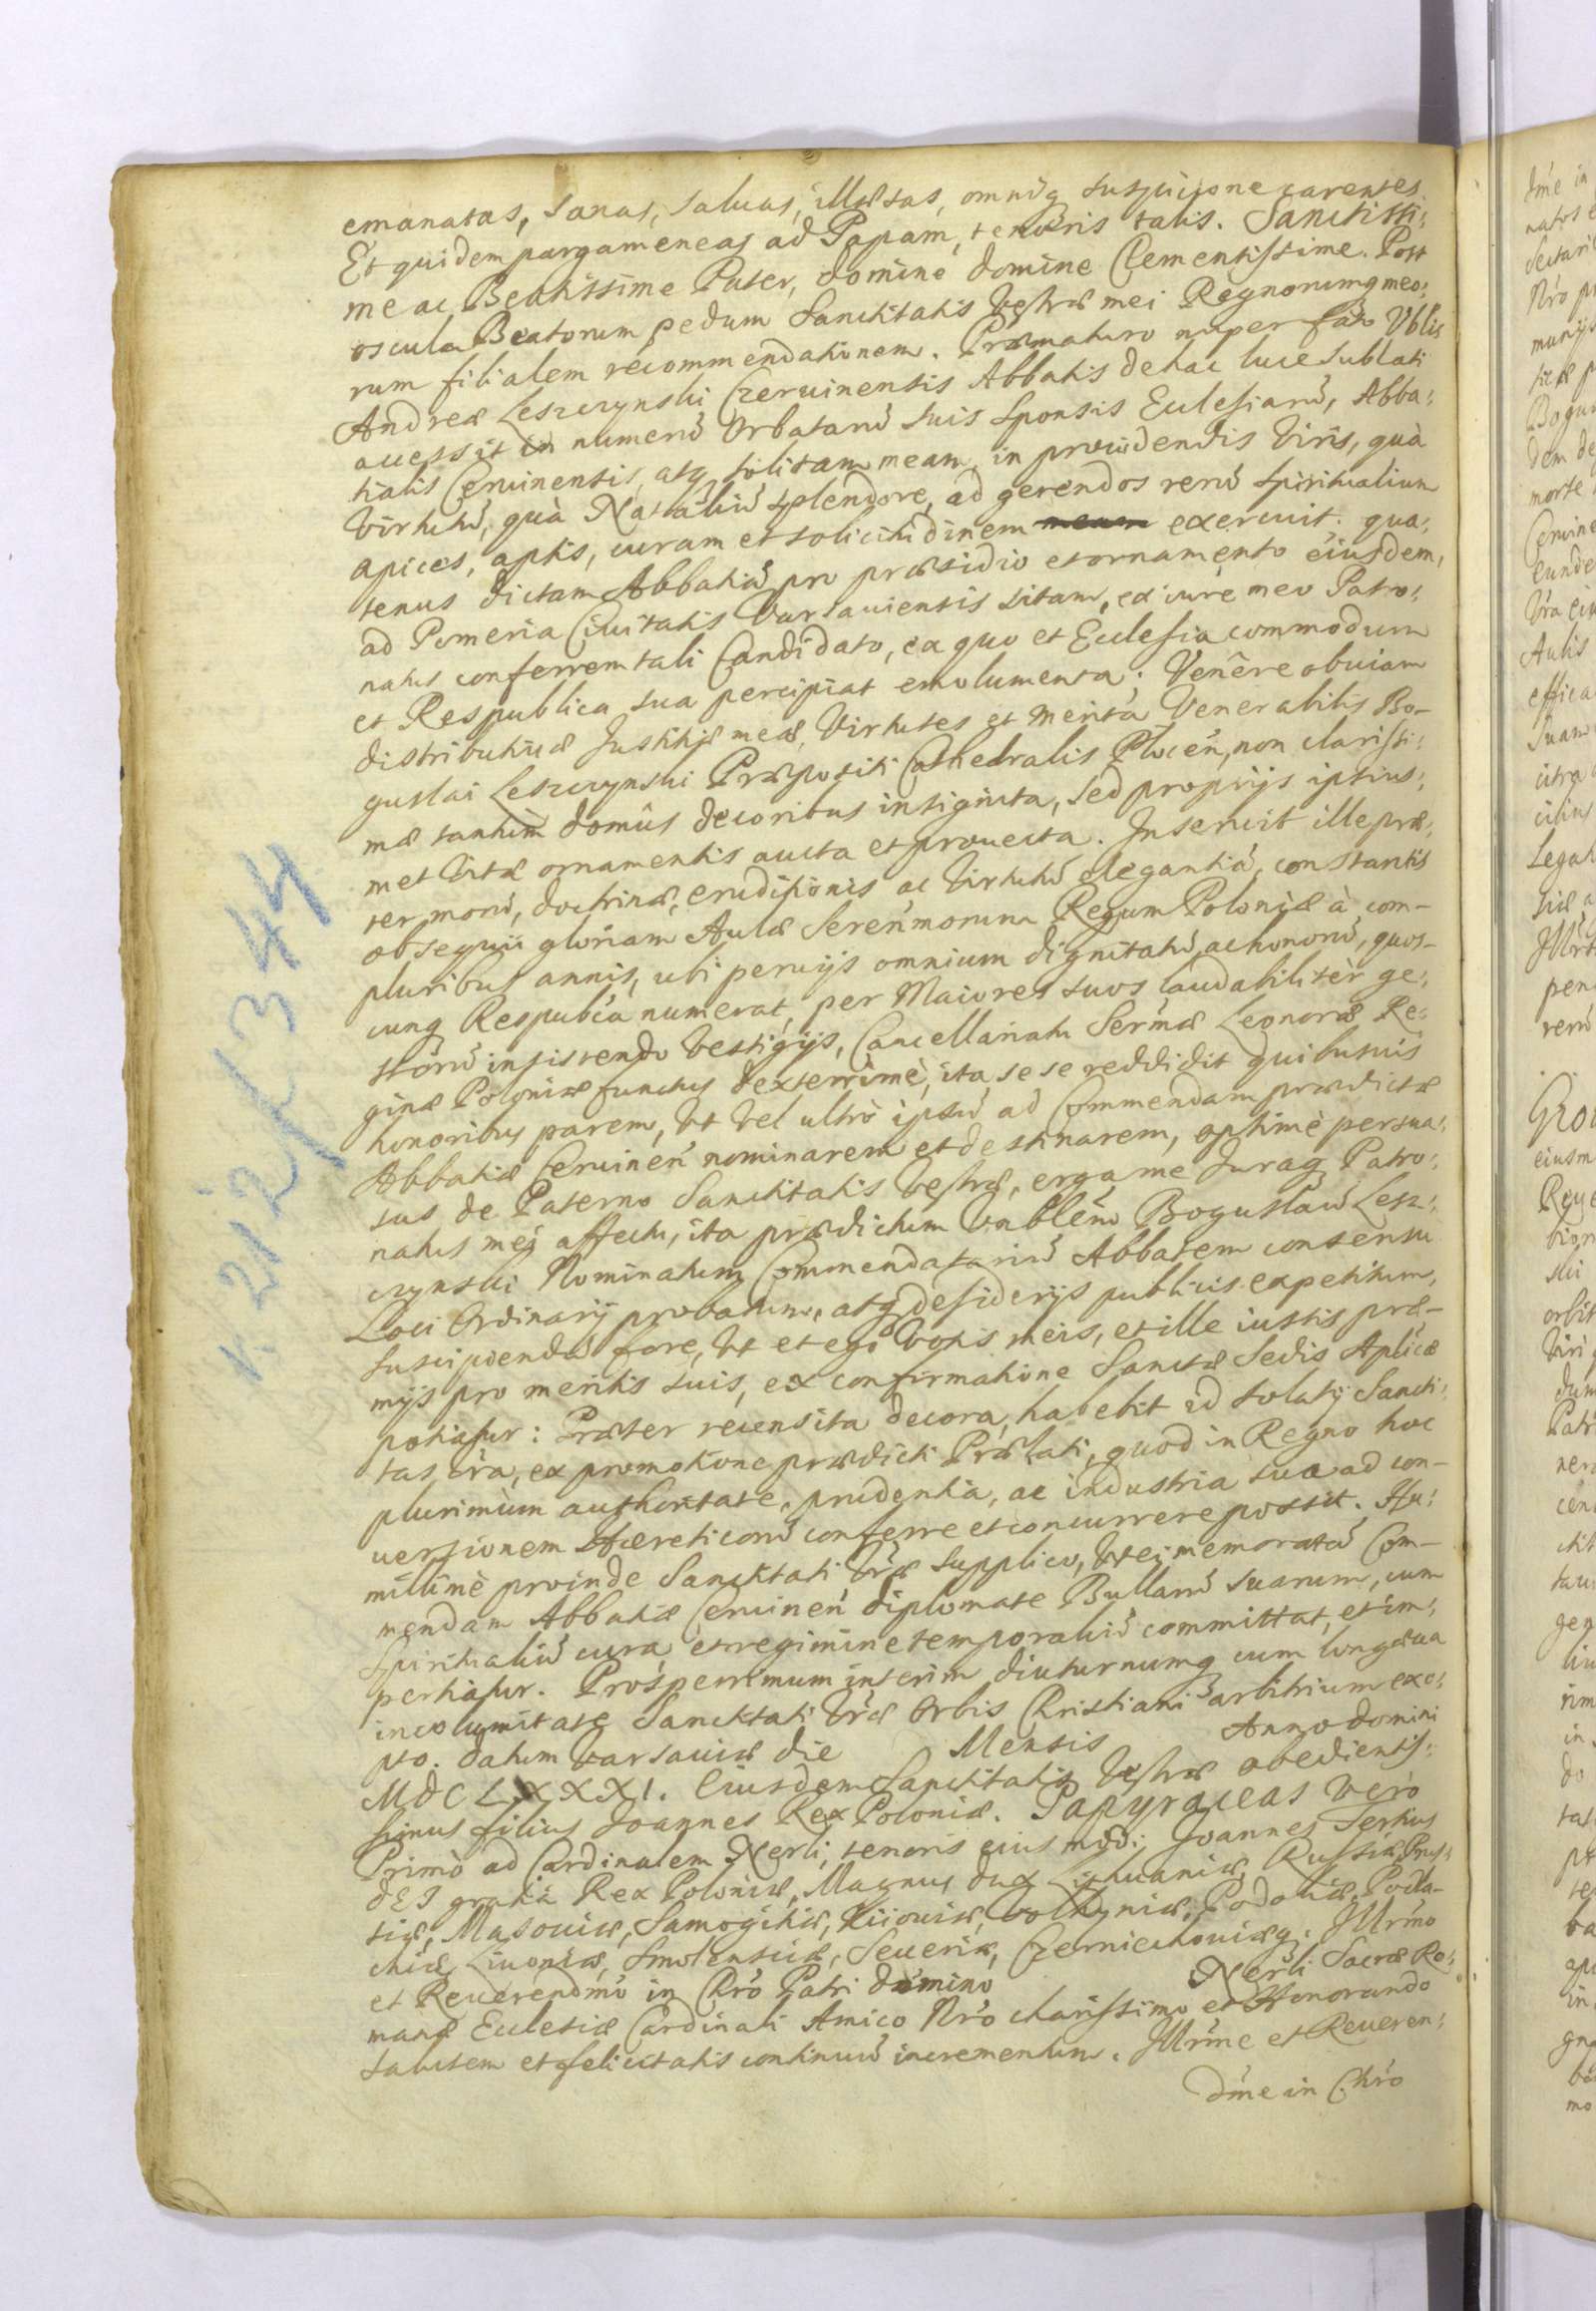 emanatas, sanas, saluas, illæsas, omniq suspicione carentes
Et quidem pargameneas ad Papam, tenoris talis. Sanctissi:
me ac Beatissime Pater, domine domine Clementissime. Post
oscula Beatorum pedum Sanctitatis Vestræ mei Regnorumq meo:
rum filialem recommendationem. Præmaturo nuper fato Vblis
Andreæ Leszczynski Czeruinensis Abbatis de hac luce sublati
accessit in numerū Orbatarū suis sponsis Eclesiarū, Abba:
tialis Ceruinensis, atq solitam meam in prouidendis Viris, quà
Virtutū, quà Nataliū splendore, ad gerendos rerū spiritualium
apices, aptis, curam et solicitudinem meam exercuit. qua:
tenus dictam Abbatiā pro præsidio et ornamento eiusdem,
ad Pomeria Ciuitatis Varsauiensis sitam, ex iure meo Patro:
natus conferrem tali Candidato, ex quo et Eclesia commodum
et Respublica sua percipiat emolumenta; Venêre obuiam
distributiuæ Justitiæ meæ, Virtutes et merita Venerabilis Bo-
guslai Leszczynski Præpositi Cathedralis Plocen, non clarissi:
mæ tantùm domûs decoribus insignita, sed proprijs ipsius:
met Vitæ ornamentis aucta et prouecta. Inseruit ille præ:
ter morū, doctrinæ, eruditionis ac Virtutū elegantiā, constantis
obsequii gloriam Aulæ Serenmorum Regum Poloniæ à com-
pluribus annis, ubi peruijs omnium dignitatū ac honorū, quos-
cunq Respublca numerat, per Maiores suos laudabilitèr ge:
storū insistendo Vestigijs, Cancellariatu Sermæ Leonoræ Re:
ginæ Poloniæ functus dexterrimè, ita sese reddidit quibusuis
honoribus parem, Vt Vel ultrò ipsū ad Commendam prædictæ
Abbatiæ Ceruinen nominarem et destinarem, optimè persua:
sus de Paterno Sanctitatis Vestræ, erga me Juraq Patro:
natus mei affectu, ita prædictum Vnblem Boguslaū Lesz:
czynski Nominatum Commendatariū Abbatem consensu
Loci Ordinarij probatum, atq desiderijs publicis expetitum,
suscipiendū fore, Vt et ego Votis meis, et ille iustis præ-
mijs pro meritis suis, ex confirmatione Sanctæ Sedis Aplicæ
potiatur: Præter recensita decora, habebit id solatij Sancti:
tas Vra, ex promotione prædicti Prælati, quod in Regno hoc
plurimùm authoritate, prudentia, ac industria sua ad con-
uersionem Hæreticorū conferre et concurrere possit. Hu:
millimè proinde Sanctitati Vræ supplico, Vt ei memoratā Com-
mendam Abbatiæ Ceruinen diplomate Bullarū suarum, cum
spiritualiū cura, et regimine temporaliū committat, et im:
pertiatur. Prosperrimum interim diuturnumq cum longæua
incolumitate Sanctitati Vræ Orbis Christiani arbitrium exo:
pto. datum Varsauiæ die Mensis Anno domini
MdCLXXXI. Eiusdem Sanctitatis Vestræ obedientis:
simus filius Joannes Rex Poloniæ. Papyraceas Verò
Primò ad Cardinalem Nerli, tenoris eius mdi: Joannes Tertius
dEI gratia Rex Poloniæ, Magnus dux Lithuaniæ, Russiæ, Prus:
siæ, Masouiæ, Samogitiæ, Kijouiæ, Volhyniæ, Podoliæ, Podla-
chiæ, Liuoniæ, Smolensciæ, Seueriæ, Czerniechouiæq. Illrmo
et Reuerendmo in Chro Patri domino Nerli Sacræ Ro:
manæ Eclesiæ Cardinali Amico Nro charissimo et Honorando
salutem et felicitatis continuū incrementum. Illrme et Reueren:
dme in Chro